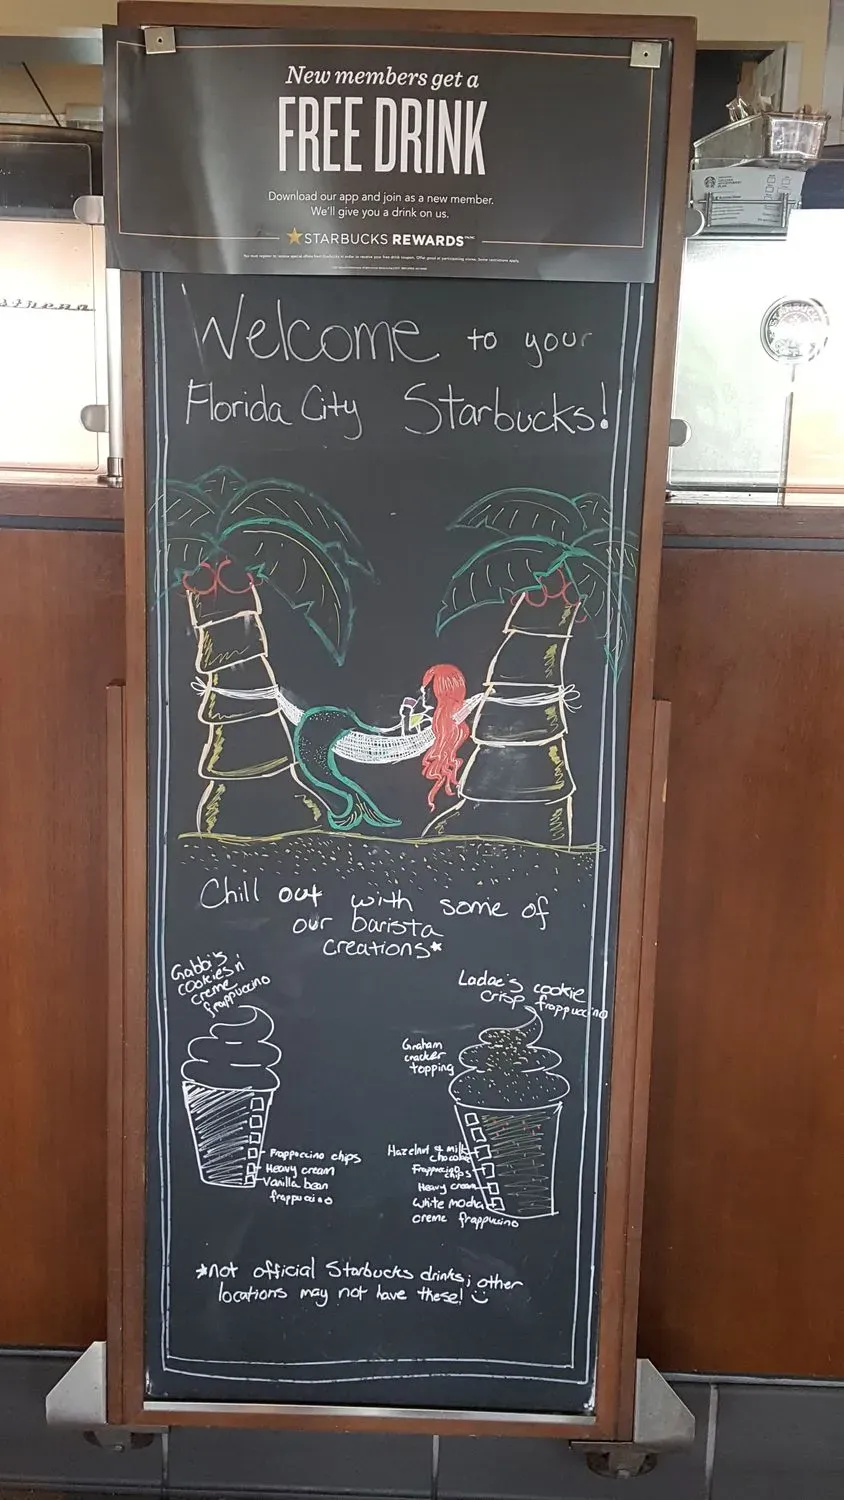 New members get a
FREE DRINK
Download our app and join as a new member.
We'll give you a drink on us.
STARBUCKS REWARDS
Welcome to your
Florida City Starbucks!
Chill out with some of
our barista
creations*
Gabbi's
cookies n'
creme
frappuccino
Frappuccino chips
Heavy cream
Vanilla bean
frappuccino
Ladae's cookie
crisp frappuccino
Graham
cracker
topping
Hazelnut & milk
chocolate
Frappuccino
chips
Heavy cream
White mocha
creme frappuccino
*not official Starbucks drinks; other
locations may not have these!